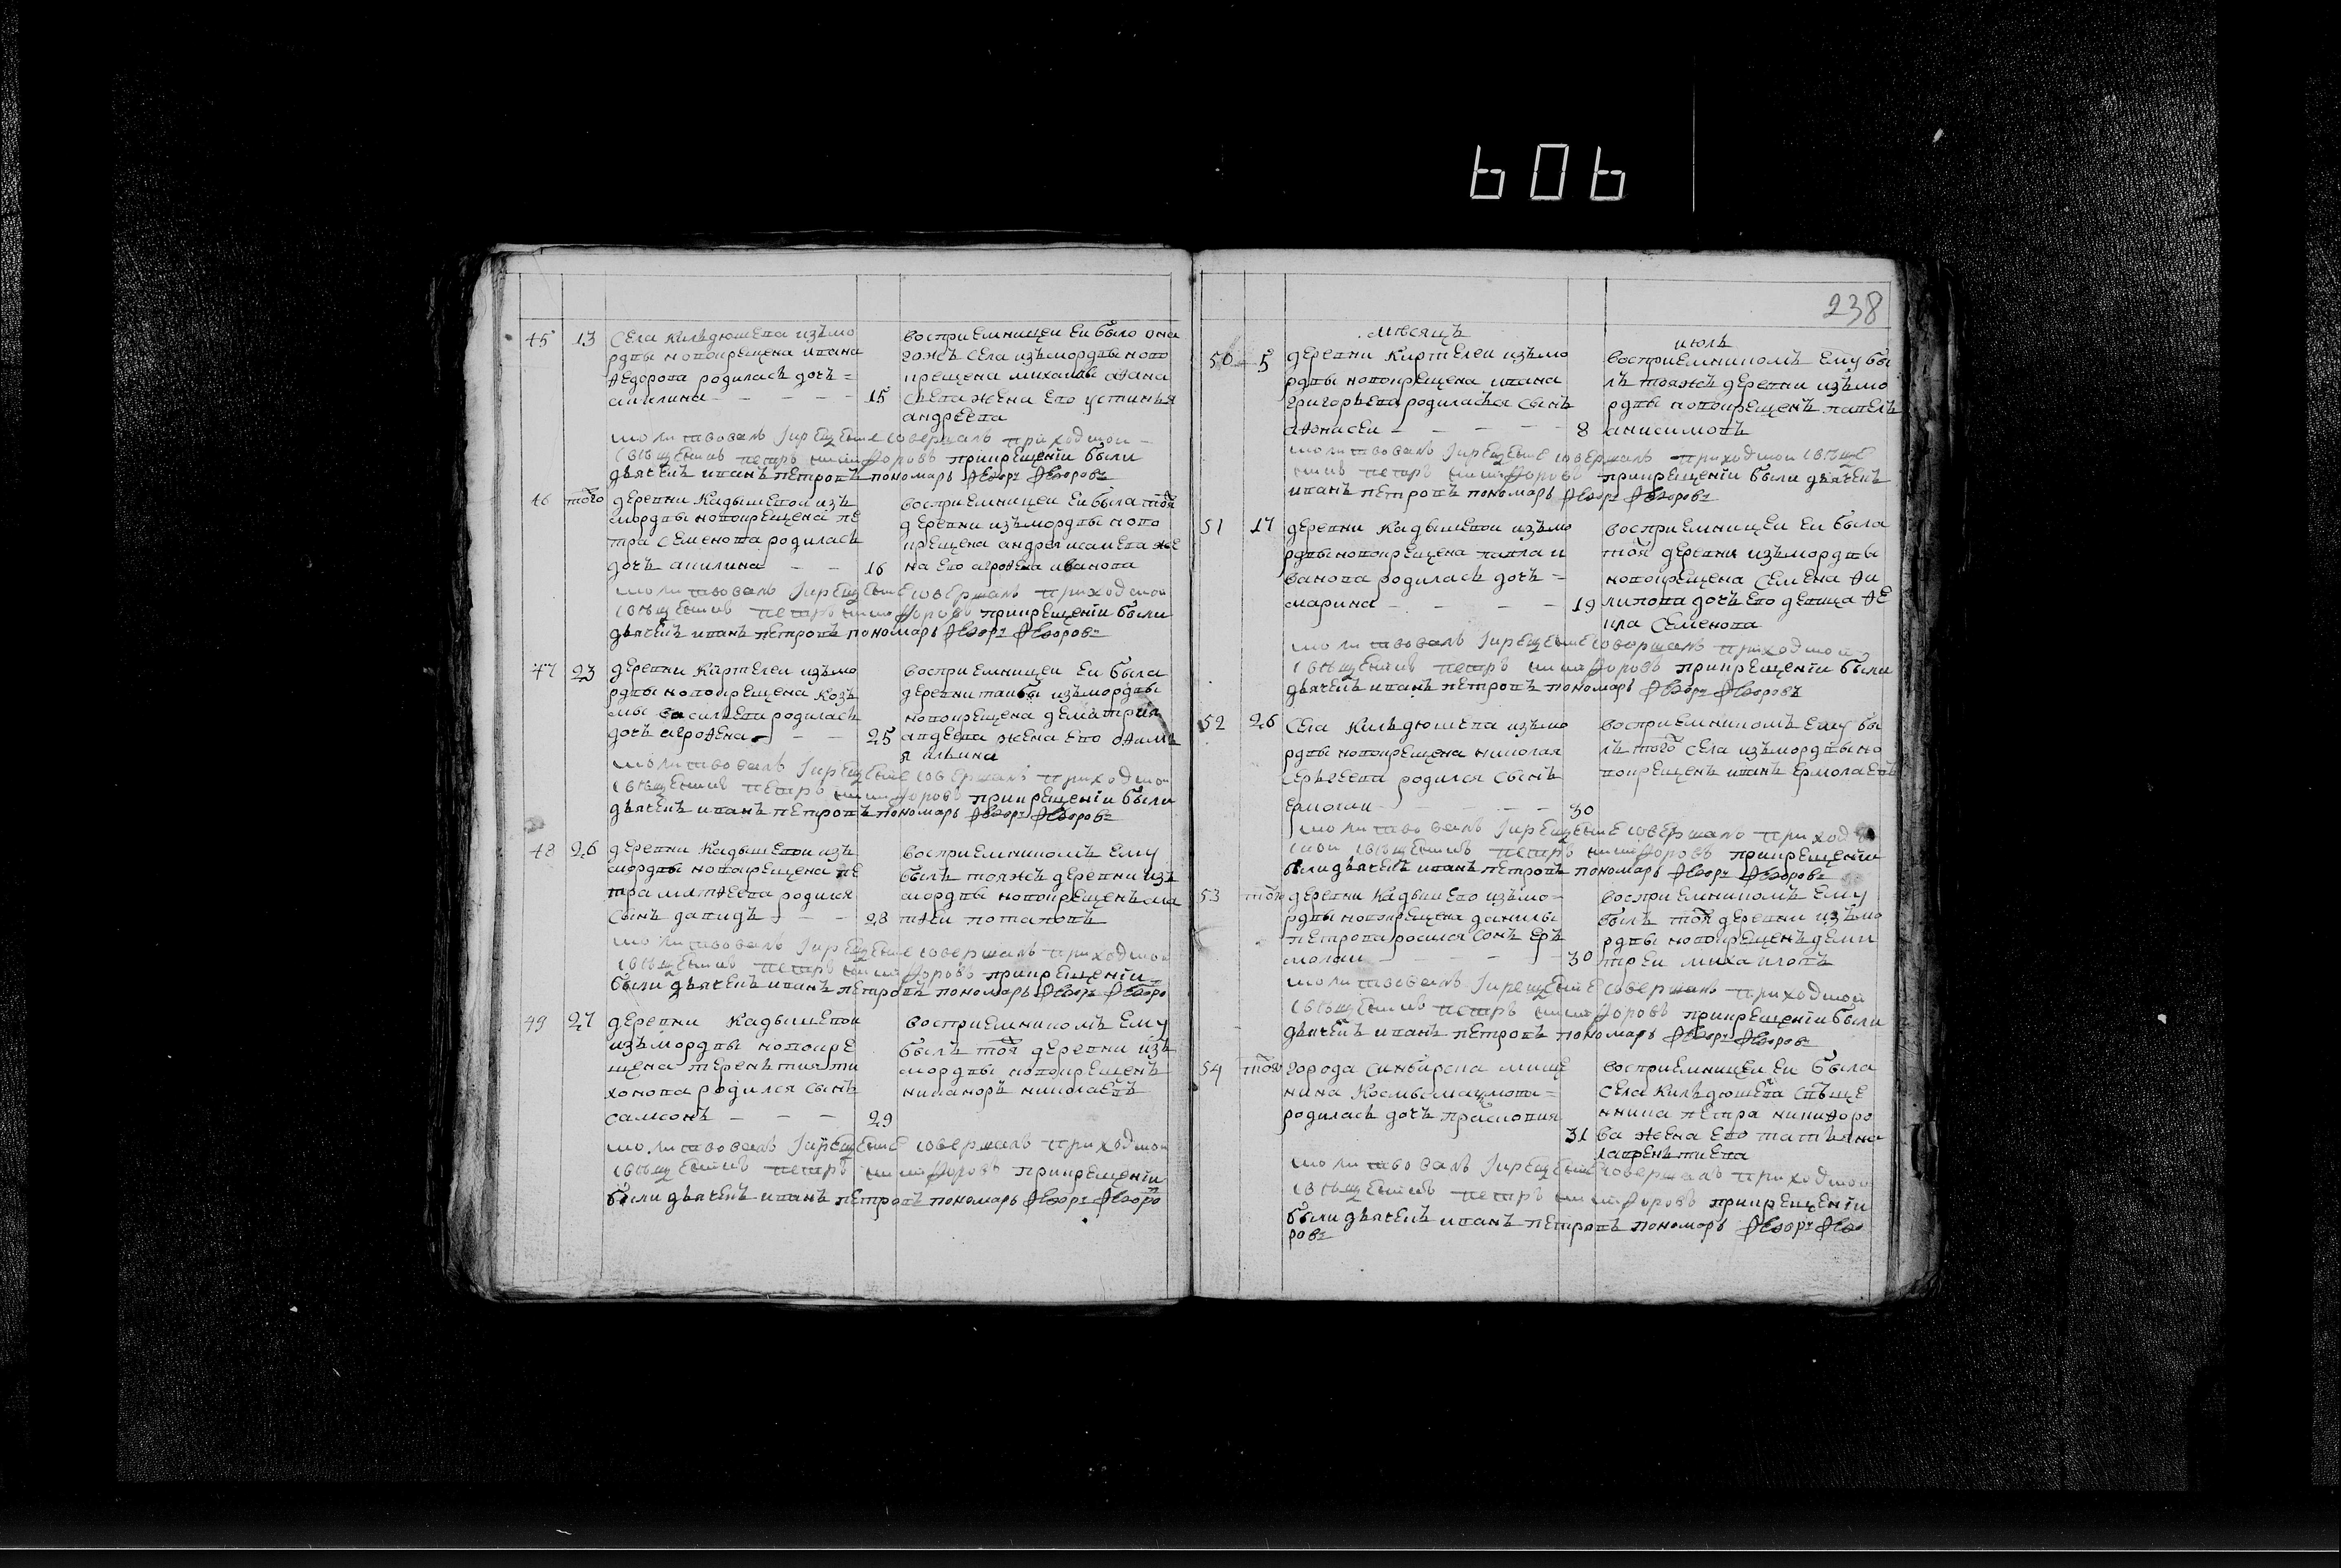 606
238
45 13 Села Кильдюшева изъмо
рдвы новокрещена ивана
Федорова родилась дочь =
акилина - - - - - 15
восприемницеи еи было она
гожъ села изъмордвы ново
крещена михаилы Афана
сьева жена его устинья
андреева
молитвовалъ Iкрещение совершалъ приходской
священникъ петръ никифоровъ прикрещенiи были
дьячекъ иванъ петровъ пономарь Ѳедоръ Ѳедоровъ
46 того деревни Кадышевои изъ
мордвы новокрещена пе
тра Семенова родилась
дочь акилина - - 16
восприемницеи еи была тоя
деревни изъмордвы ново
крещена андрея исаева же
на его агрофена иванова
молитвовалъ Iкрещение совершалъ приходской
священникъ петръ никифоровъ прикрещенiи были
дьячекъ иванъ петровъ пономарь Ѳедоръ Ѳедоровъ
47 23 деревни Киртелеи изъмо
рдвы новокрещена Козь
мы василева родилась
дочь агрофена - - 25
восприемницеи еи была
деревни таибы изъмордвы
новокрещена демитрия
авдеева жена его офимь
я ильина
молитвовалъ Iкрещение совершалъ приходской
священникъ петръ никифоровъ прикрещенiи были
дьячекъ иванъ петровъ пономарь Ѳедоръ Ѳедоровъ
48 26 деревни Кадышевои изъ
мордвы новокрещена пе
тра матфеева родился
сынъ давидъ - - 28
восприемникомъ ему
былъ тояжъ деревни изъ
мордвы новокрещенъ ма
тфеи потаповъ
молитвовалъ Iкрещение совершалъ приходской
священникъ петръ никифоровъ прикрещенiи
были дьячекъ иванъ петровъ пономарь Ѳедоръ Ѳедоро
49 27 деревни Кадышевои
изъмордвы новокре
щена терентия ти
хонова родился сынъ
самсонъ - - - 29
восприемникомъ ему
былъ тоя деревни изъ
мордвы новокрещенъ
никаноръ николаевъ
молитвовалъ Iкрещение совершалъ приходской
священникъ петръ никифоровъ прикрещенiи
были дьячекъ иванъ петровъ пономарь Ѳедоръ Ѳедоро
мѣсяцъ июль
50 5 деревни Киртелеи изъмо
рдвы новокрещена ивана
григорьева родилася сынъ
афонасеи - - - - 8
восприемникомъ ему бы
лъ тояжъ деревни изъмо
рдвы новокрещенъ павелъ
анисимовъ
молитвовалъ Iкрещение совершалъ приходской свѣще
никъ петръ никифоровъ прикрещенiи были дьячекъ
иванъ петровъ пономарь Ѳедоръ Ѳедоровъ
51 17 деревни Кадышевои изъмо
рдвы новокрещена павла и
ванова родилась дочь =
марина - - - - 19
восприемницеи еи была
тоя деревни изъмордвы
новокрещена Семена Фи
липова дочь его девица Фе
кла Семенова
молитвовалъ Iкрещение совершалъ приходской
священникъ петръ никифоровъ прикрещенiи были
дьячекъ иванъ петровъ пономарь Ѳедоръ Ѳедоровъ
52 26 Села Кильдюшева изъмо
рдвы новокрещена николая
Сергеева родился сынъ
ермолаи - - - - 30
восприемникомъ ему бы
лъ того села изъмордвы но
вокрещенъ иванъ Ермолаевъ
молитвовалъ Iкрещение совершалъ приход
ской священникъ петръ никифоровъ прикрещенiи
были дьячекъ иванъ петровъ пономарь Ѳедоръ Ѳедоровъ
53 того деревни Кадышево изъмо-
рдвы новокрещена данилы
петрова росился сонъ ерь
молаи - - - - 30
восприемникомъ ему
былъ тоя деревни изъмо
рдвы новокрещенъ деми
треи михаиловъ
молитвовалъ Iкрещение совершалъ приходской
священникъ петръ никифоровъ прикрещенiи были
дьячекъ иванъ петровъ пономарь Ѳедоръ Ѳедоровъ
54 того города Синбирска мище
нина Космы
родилась дочь прасковия 31
восприемницеи еи была
села Кильдюшева свѣще
нника петра никифоро
ва жена его татьяна
лаврентиева
молитвовалъ Iкрещение совершалъ приходской
священникъ петръ никифоровъ прикрещенiи
были дьячекъ иванъ петровъ пономарь Ѳедоръ Ѳедо
ровъ